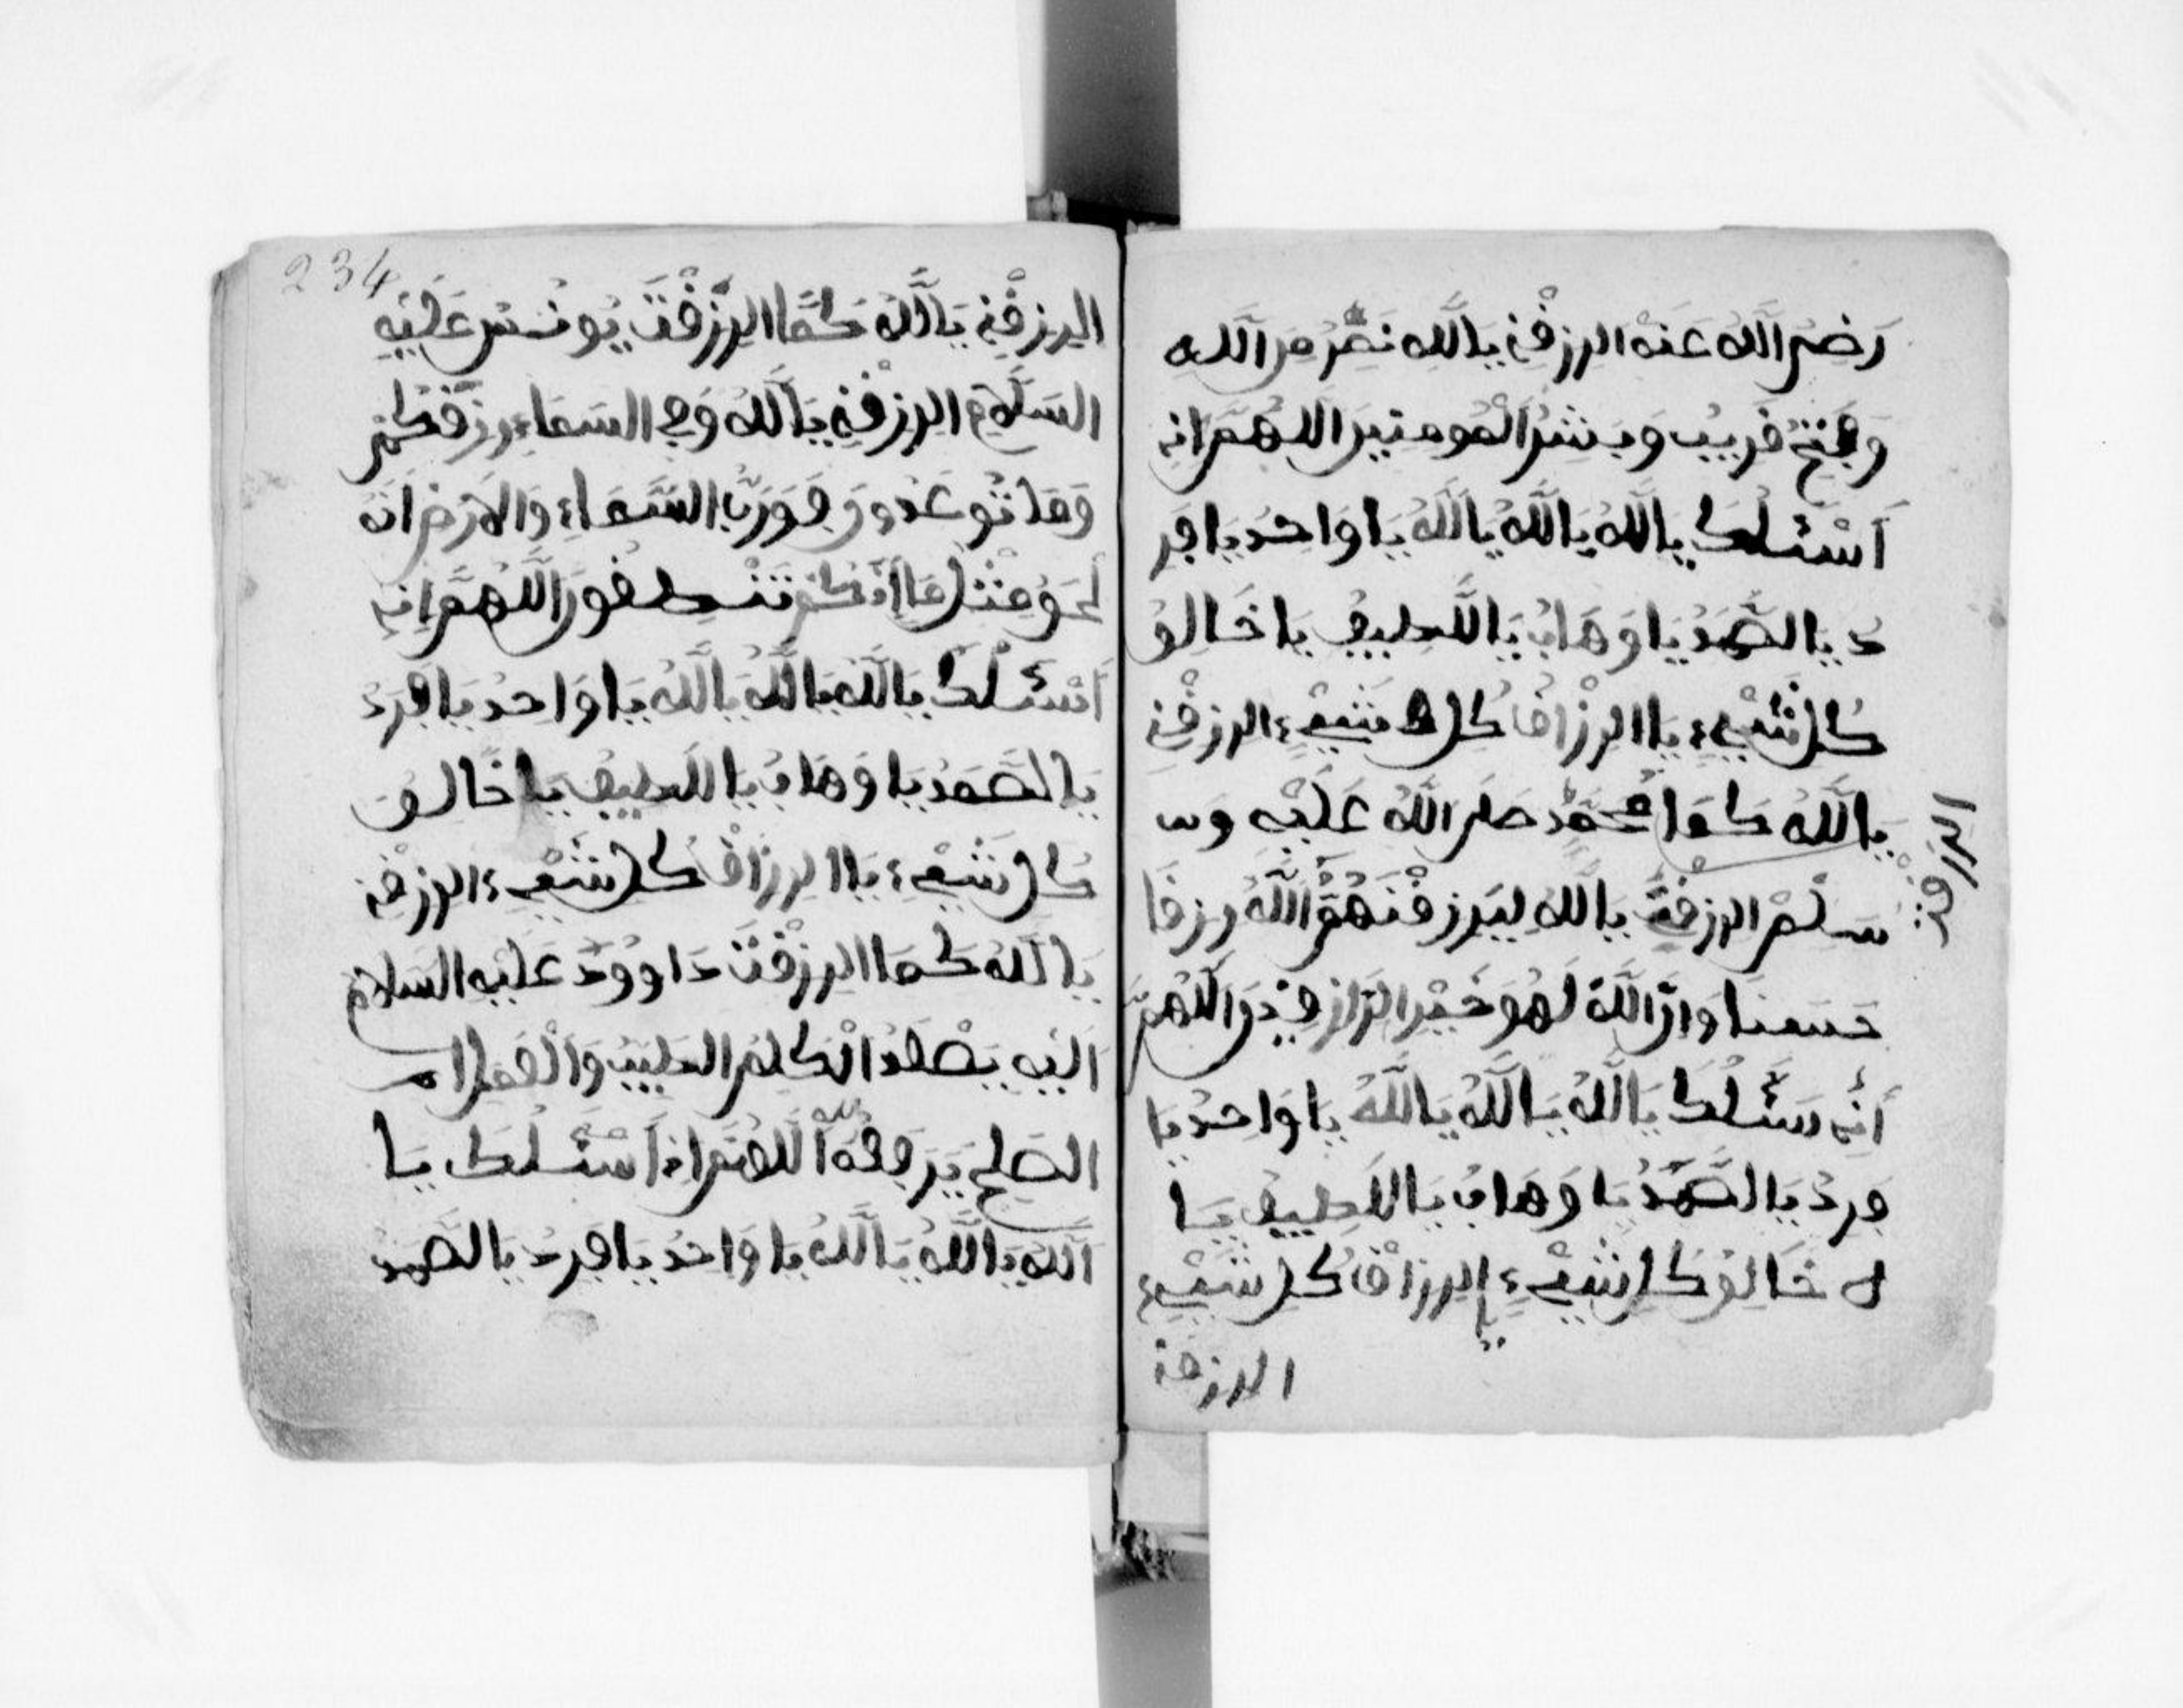 رَضِىَ اللَّهُ عَنْهُ الرزقْنِى يَاللَّهِ نَصْرُ مِنَ اللَّهِ
وَفَتْحٌ قَرِيبٌ وَبَشِّرُ الْمُومِنِينَ اللَّهُمَّ انِى
أَسْئَلُكَ يَاللَّهُ يَاللَّهُ يَاللَّهُ يَا وَاحِدُ يَا فَر
دُ يَا الصَّمَدُ يَا وَهَابُ يَا اللَّطِيفُ يَا خَالِقُ
كُلِ شَيْءٍ يَا الرزَّاقُ كُلِ شَيْءٍ الرزقْنِى
يَاللَّهُ كَمَا مُحَمَّدُ صَلَى اللَّهُ عَلَيْهِ وَسَـ
سَلَّمْ الرزقْتَ يَاللَّهِ لِيَرزقَنَهُمُ اللَّهُ رِزقًا
حَسَنًا وَاِنَّ اللَّهَ لَهُوَ خَيْرُ الرَّازِقِينَ اللَّهُمَّ
أَنِى سْئَلُكَ يَاللَّهُ يَاللَّهُ يَاللَّهُ يَا وَاحِدُ يَا
فَرِدُ يَا الصَّمَدُ يَا وَهَابُ يَا اللَّطِيفُ يَا
خَالِقُ كُلِ شَيْءٍ يَا الرزاقُ كُلِ شَيْءٍ
الرزقنى
الرزقت
234
الرزقْنِى يَاللَّهُ كَمَا الرَّزَقْتَ يُونُسَ عَلَيْهِ
السَلَّامِ الرزقْنِى يَاللَّهُ وَفِى السَمَاءِ رِزقُكُمْ
وَمَا تُوعَدُونَ فَوَرَبِّ السَّمَاءِ وَالاَرْضِ اِنَهُ
لَحَقٌ مِثْلَ مَا أَنَّكُمْ تَنْطِقُونَ اللَّهُمَّ اِنِى
اَسْئَلُكَ يَاللَّهُ يَاللَّهُ يَاللَّهُ يَا وَاحِدُ يَا فَرَدُ
يَا الصَّمَدُ يَا وَهَابُ يَا اللَّطِيفُ يَا خَالِقُ
كُلِ شَيْءٍ يَا الرِزَاقُ كُلِ شَيْءٍ الرزقْنِى
يَاللَّهُ كَمَا الرزقْتَ دَاوُودَ عَلَيْهِ السَلَام
اِلَيْهِ يَصْعَدُ الْكَلِمُ الطَيِّبُ وَالْعَمَلُ الـ
الصَلِحُ يَرفَعُهُ اللَّهُمَّ اِنِى أَسْئَلُكَ يَا
اَللَّهُ يَاللَّهُ يَاللَّهُ يَا وَاحِدُ يَا فَرِدُ يَا الصَّمَدُ